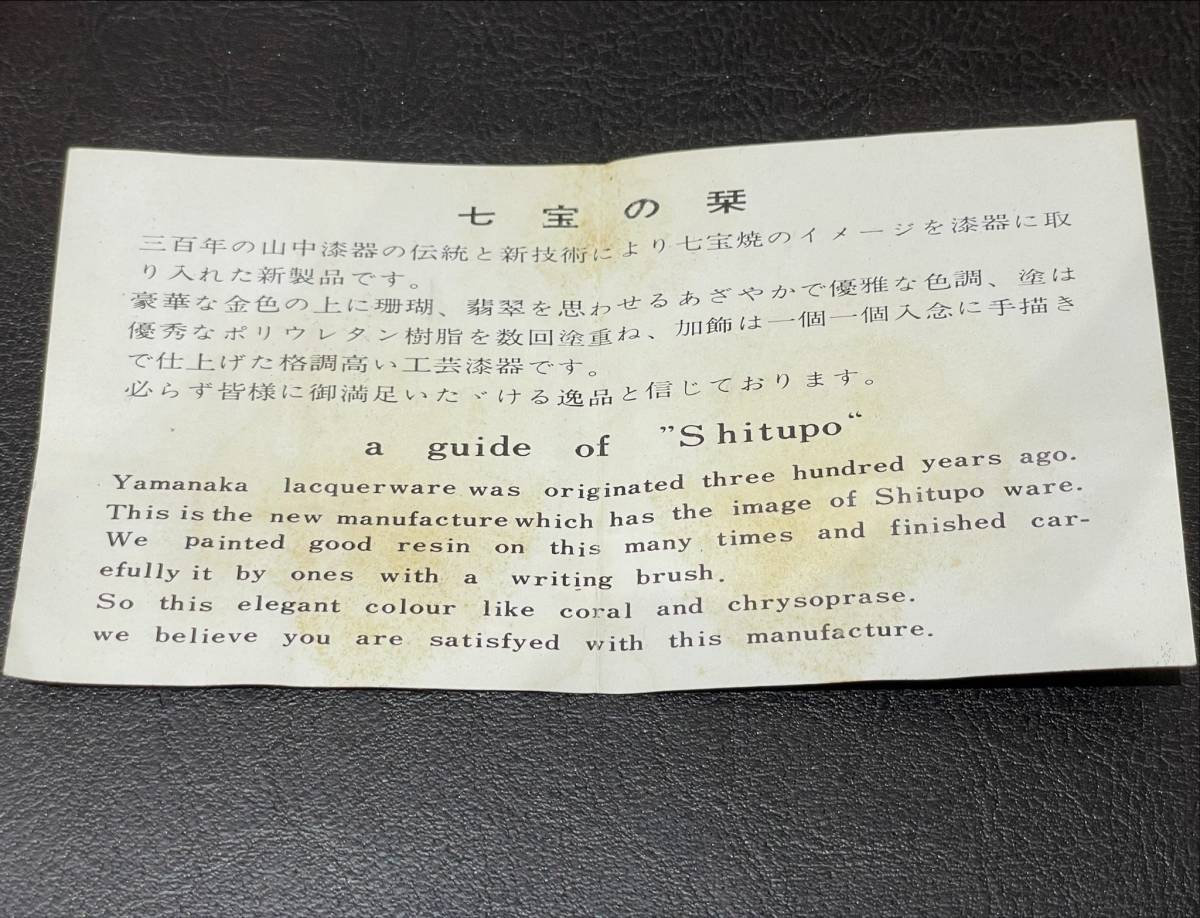 七宝の栞
三百年の山中漆器の伝統と新技術により七宝焼のイメージを漆器に取
り入れた新製品です。
豪華な金色の上に珊瑚、翡翠を思わせるあざやかで優雅な色調、塗は
優秀なポリウレタン樹脂を数回塗重ね、加飾は一個一個入念に手描き
で仕上げた格調高い工芸漆器です。
必らず皆様に御満足いたゞける逸品と信じております。
a guide of ”Shitupo“
Yamanaka lacquerware was originated three hundred years ago.
This is the new manufacture which has the image of Shitupo ware.
We painted good resin on this many times and finished car-
efully it by ones with a writing brush.
So this elegant colour like coral and chrysoprase.
we believe you are satisfyed with this manufacture.